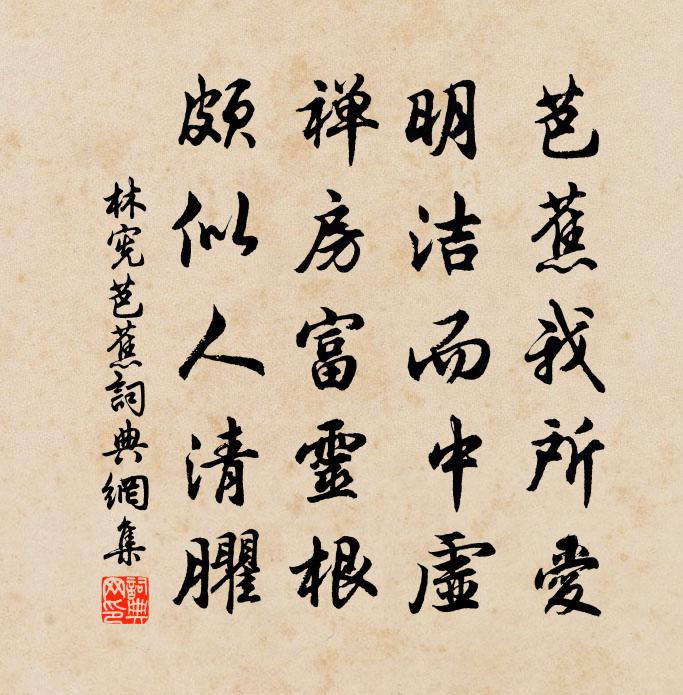 芭蕉我所愛
明洁而中虛
禅房富靈根
頗似人清臞
林宪芭蕉詞典網集
詞典
网印